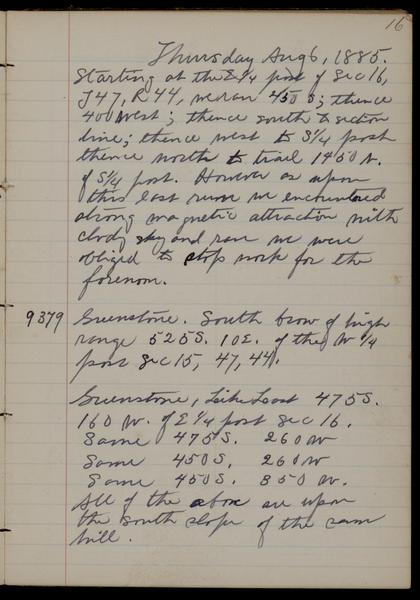 16
Thursday Aug 6, 1885.
Starting at the E 1/4 post of Sec 16,
T47, R44, we ran 450 S; thence
400 west; thence south to section
line; thence west to S 1/4 post
thence north to trail 1450 N.
of S 1/4 post. However as upon
this last run we encountered
strong magnetic attraction with
clody sky and rain we were
obliged to stop work for the
forenoon.
9379 Greenstone. South brow of high
range 525 S. 10 E. of the W 1/4
post Sec 15, 47, 44.
Greenstone, Like Last 475 S.
160 W. of E 1/4 post Sec 16.
Same 475 S. 260 W
Same 450 S. 260 W
Same 450 S. 350 W.
All of the above are upon
the south slope of the same
hill.